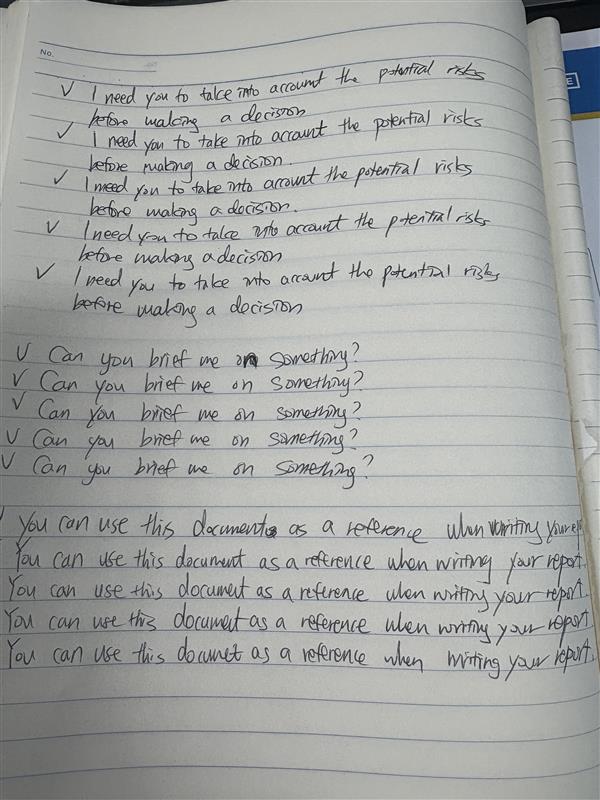 No.
✓ I need you to take into account the potential risks
before making a decision
✓ I need you to take into account the potential risks
before making a decision.
✓ I need you to take into account the potential risks
before making a decision.
✓ I need you to take into account the potential risks
before making a decision
✓ I need you to take into account the potential risks
before making a decision
✓ Can you brief me on something?
✓ Can you brief me on something?
✓ Can you brief me on something?
✓ Can you brief me on something?
✓ Can you brief me on something?
You can use this document as a reference when writing your
You can use this document as a reference when writing your report.
You can use this document as a reference when writing your report.
You can use this document as a reference when writing your report.
You can use this documet as a reference when writing your report.